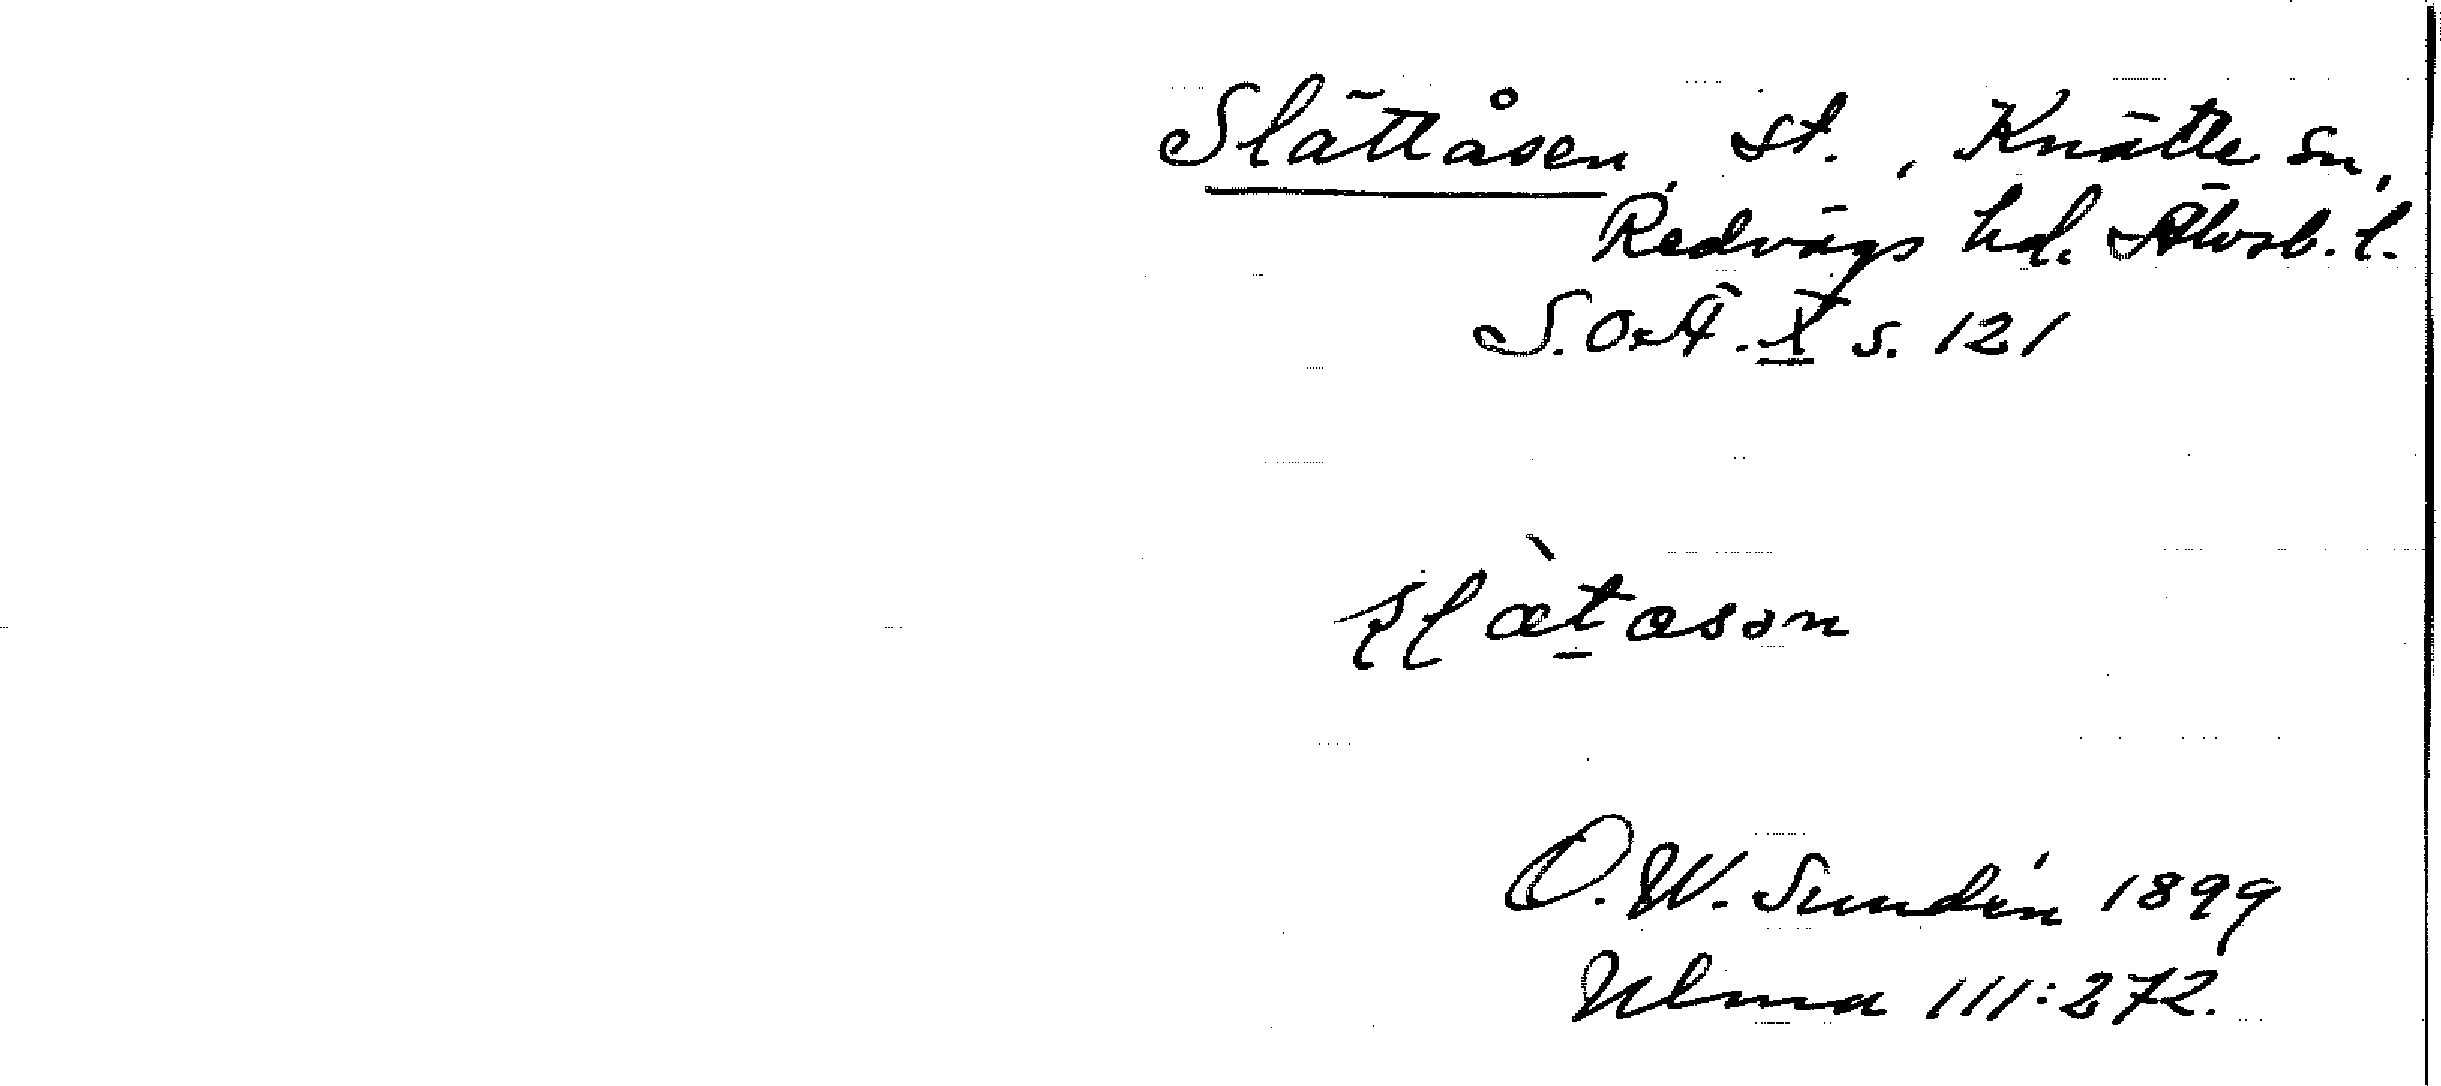 Slättåsen, st., Knätte sn,
Redvägs hd. Älvsb. l.
S.O.Ä. X s. 121
O.W. Sundén 1899
Ulma 111:272.